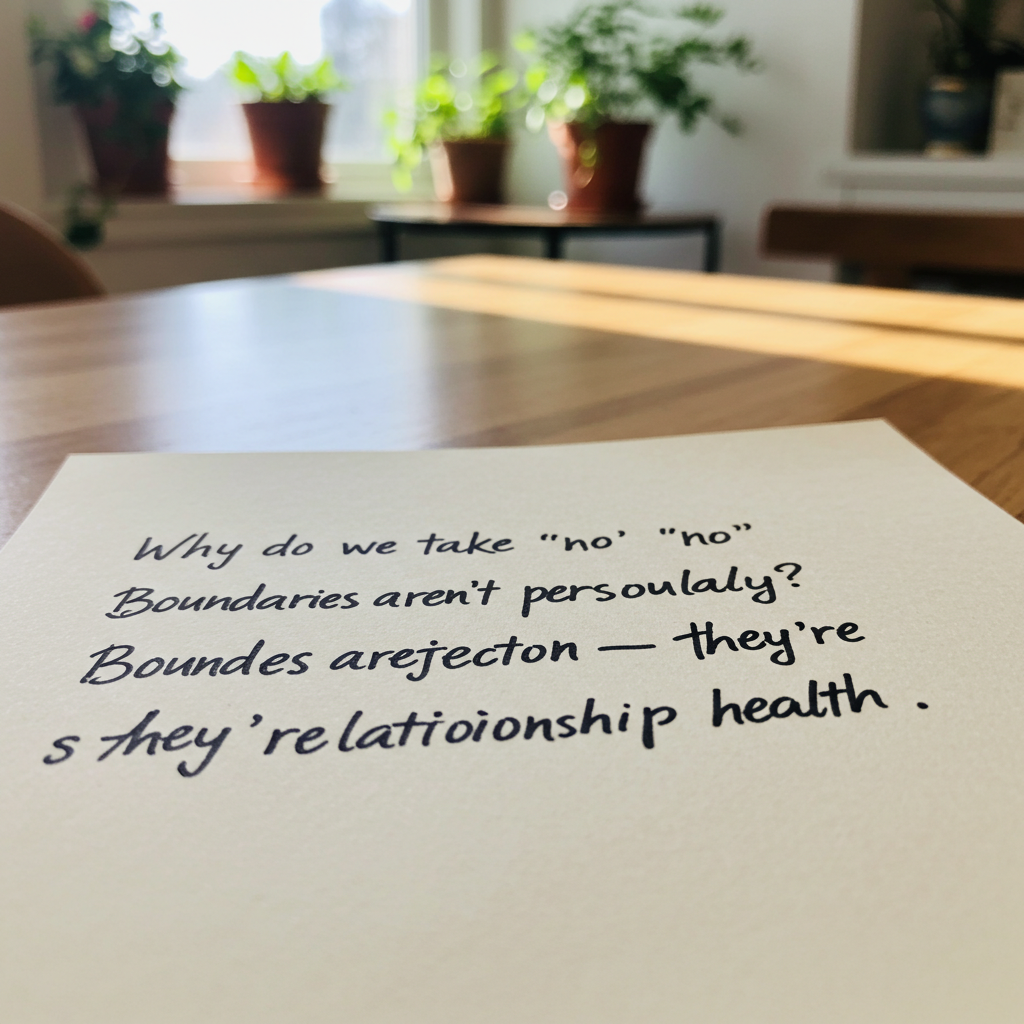 Why do we take “no’ “no”
Boundaries aren't persoulaly?
Boundes arejecton — they're
s they'relatioionship health .